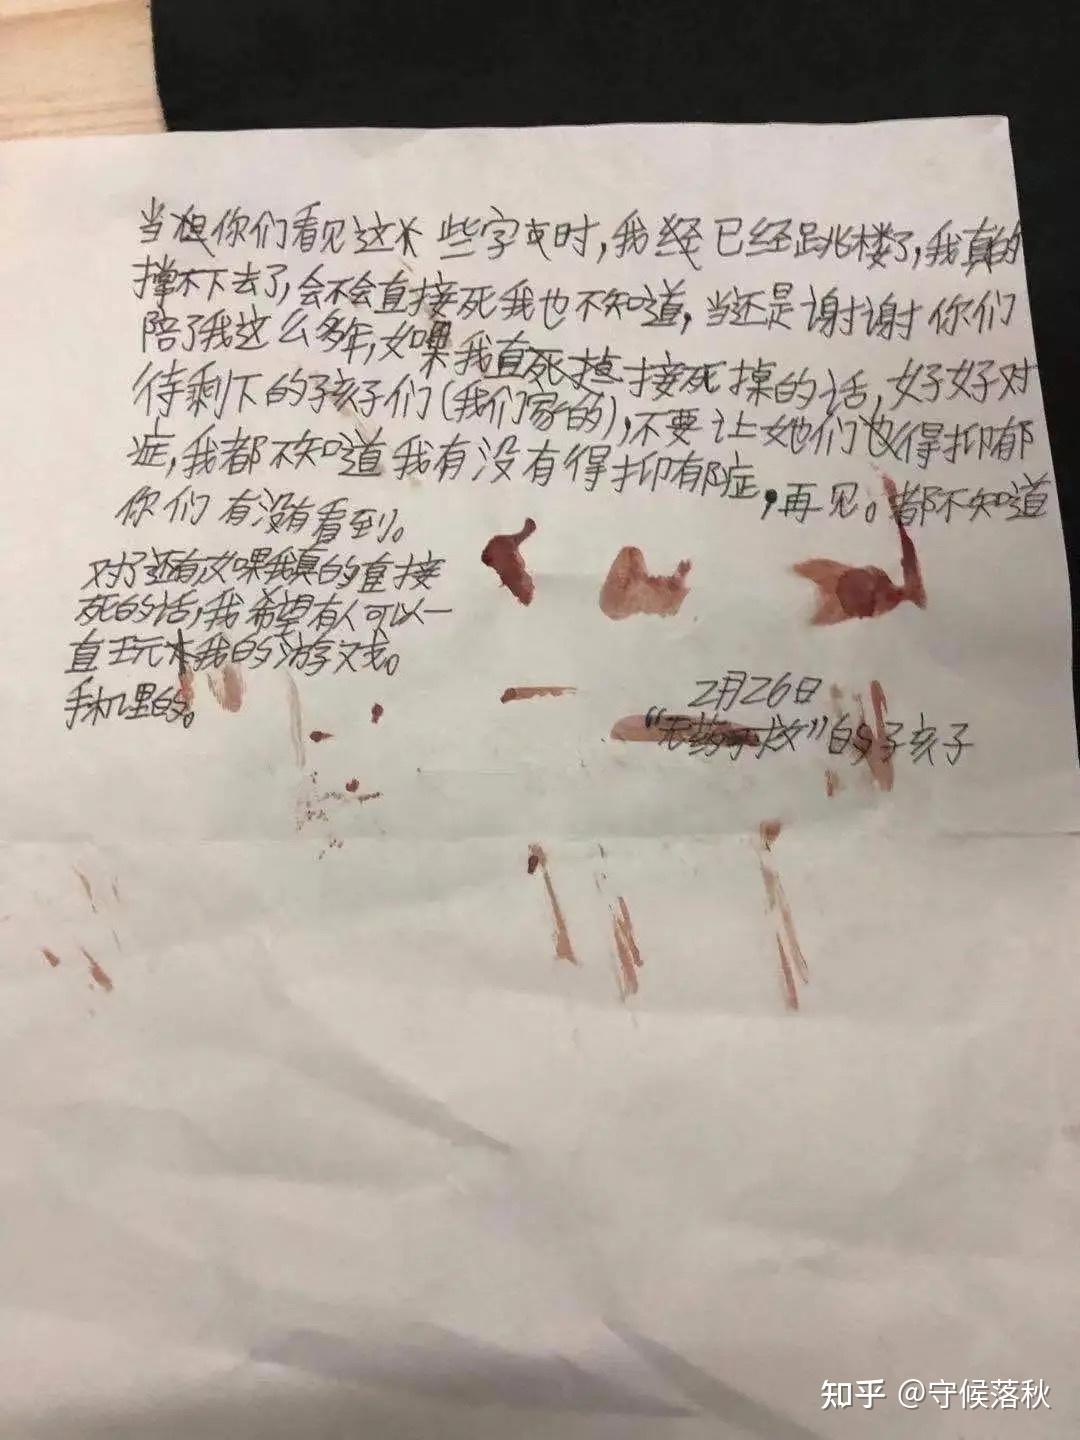 当你们看见这些字时，我已经跳楼了，我真的
撑不下去了，会不会直接死我也不知道，当还是谢谢你们
陪了我这么多年，如果我直接死掉的话，好好对
待剩下的孩子们（我们家的），不要让她们也得抑郁
症，我都不知道我有没有得抑郁症，再见。都不知道
你们有没有看到。
对了还有如果我真的直接
死的话，我希望有人可以一
直玩我的游戏。
手机里的。
2月26日
“无药可救”的孩子
知乎 @守候落秋